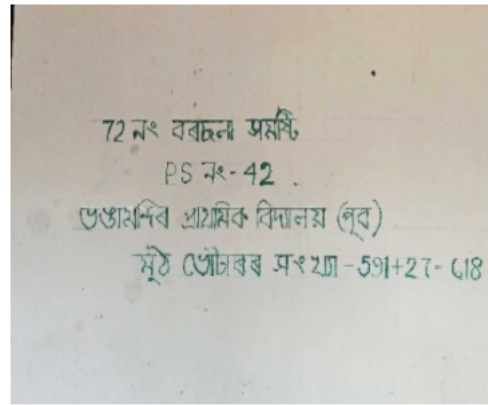 72 নং বৰছলা সমষ্টি
PS নং - 42 .
ভঙামন্দিৰ প্ৰাথমিক বিদ্যালয় (পূব)
মুঠ ভোটাৰৰ সংখ্যা - 591+27- 618